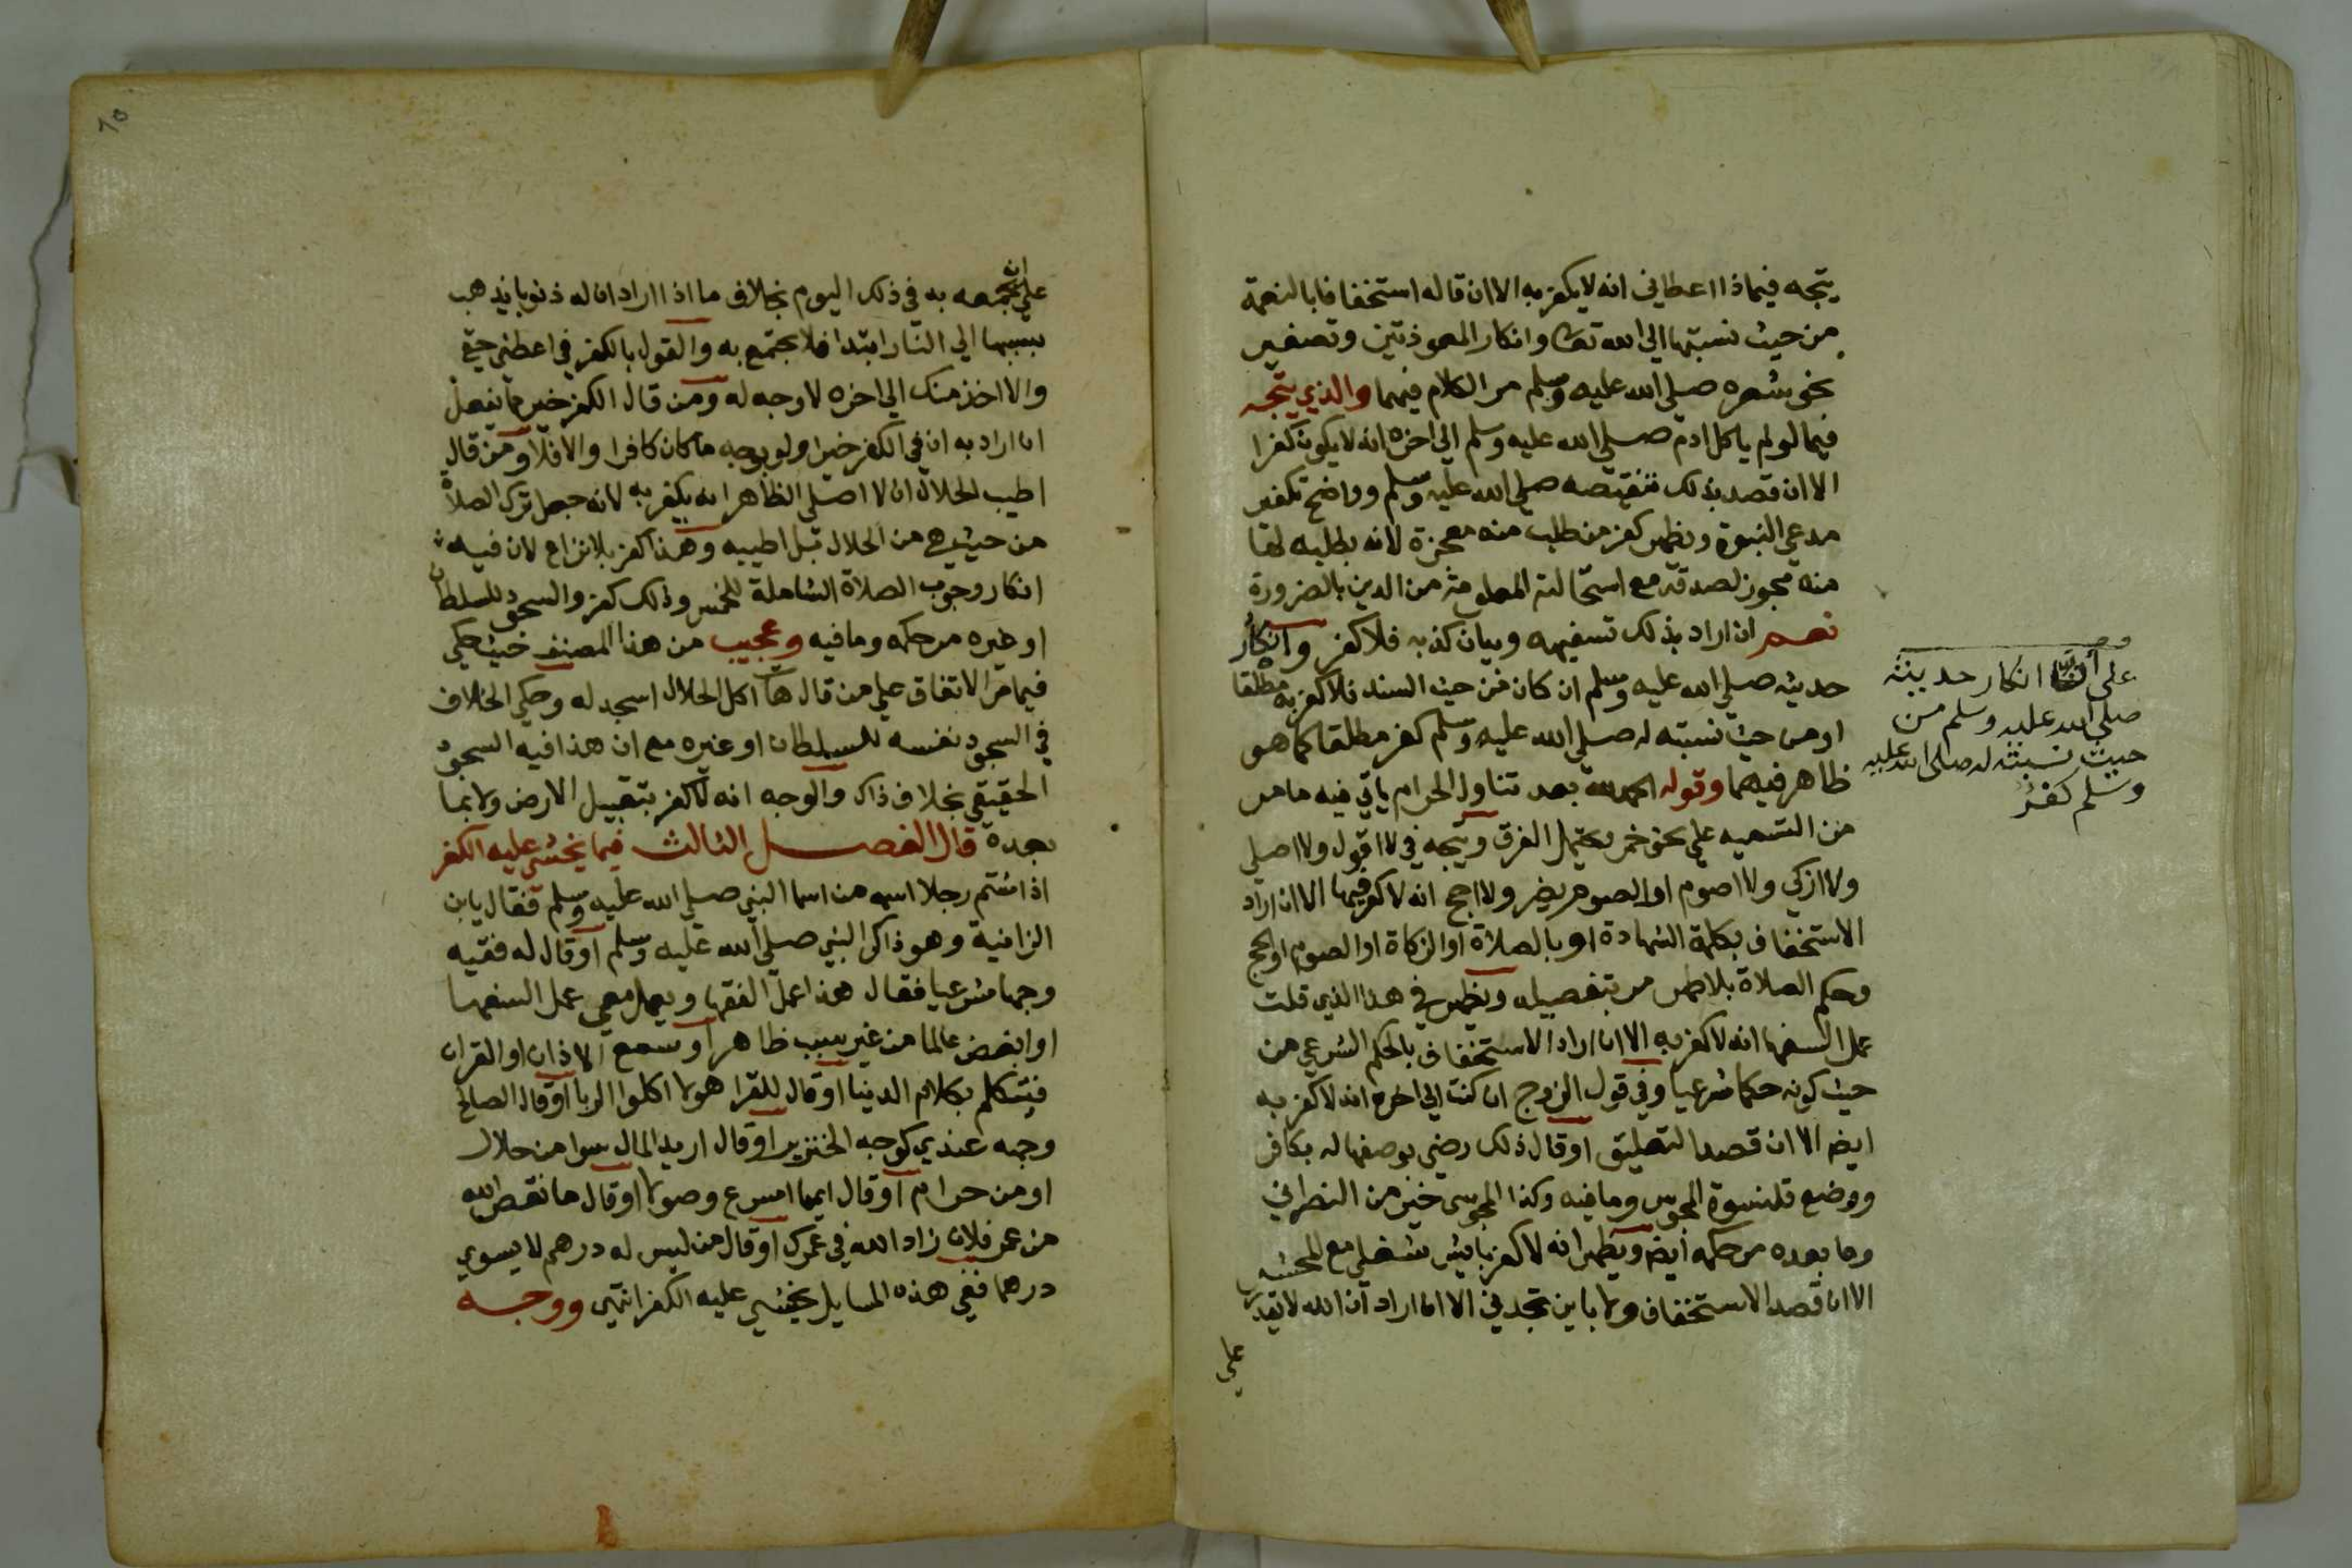 يتجه فيماذا اعطاني انه لا يكفر به الا ان قاله استخفافا بالنعمة
من حيث نسبتها الي الله تعالى وانكار المعوذتين وتصغير
نحو شعره صلي الله عليه وسلم مر الكلام فيهما والذي يتجه
فيما لو لم ياكل ادم صلي الله عليه وسلم الي اخره انه لا يكون كفرا
الا ان قصد بذلك تنقيصه صلي الله عليه وسلم وواضح تكفير
مدعي النبوة ويظهر كفر من طلب منه معجزة لانه بطلبه لها
منه مجوز لصدقه مع استحالته المعلومة من الدين بالضرورة
نعم ان اراد بذلك تسفيهه وبيان كذبه فلا كفر وانكار
حديثه صلي الله عليه وسلم ان كان من حيث السند فلا كفر به مطلقا
او من حيث نسبته له صلي الله عليه وسلم كفر مطلقا كما هو
ظاهر فيهما وقوله الحمد لله بعد تناول الحرام ياتي فيه ما مر
من التسميه علي نحو خمر يحتمل الفرق ويتجه في لا اقول ولا اصلي
ولا ازكي ولا اصوم او الصوم يضر ولا احج انه لا كفر فيها الا ان اراد
الاستخفاف بكلمة الشهادة او بالصلاة او الزكاة او الصوم او الحج
وحكم الصلاة بلا طهر مر بتفصيله ويظهر في هذا الذي قلت
عمل السفها انه لا كفر به الا ان اراد الاستخفاف بالحكم الشرعي من
حيث كونه حكما شرعيا وفي قول الزوج ان كنت الي اخره انه لا كفر به
ايضا الا ان قصد التعليق او قال ذلك رضي بوصفها له بكافر
ووضع قلنسوة المجوس وما فيه وكذا المجوسي خير من النصراني
وما بعده مر حكمه ايضا ويظهر انه لا كفر بايش شغلي مع المحشر
الا ان قصد الاستخفاف ولا باين تجدني الا ان اراد ان الله لا يقدر
علي
وصـ
على أن انكار حديثه
صلى الله عليه وسلم من
حيث نسبته له صلى الله عليه
وسلم كفر
علي ان يجمعه به في ذلك اليوم بخلاف ما اذا اراد ان له ذنوبا يذهب
بسببها الي النار ابتدا فلا يجتمع به والقول بالكفر في اعطني حقي
والا اخذ منك الي اخره لا وجه له ومن قال الكفر خير مما يفعل
ان اراد به ان في الكفر خيرا ولو بوجه ما كان كافرا والا فلا ومن قال
اطيب الحلال ان لا اصلي الظاهر انه يكفر به لانه جعل ترك الصلاة
من حيث هي من الحلال بل اطيبه وهذا كفر بلا نزاع لان فيه
انكار وجوب الصلاة الشاملة للخمس وذلك كفر والسجود للسلطان
او غيره مر حكمه وما فيه وعجيب من هذا المصنف حيث حكي
فيما مر الاتفاق علي من قال هات اكل الحلال اسجد له وحكي الخلاف
في السجود نفسه للسلطان او غيره مع ان هذا فيه السجود
الحقيقي بخلاف ذاك والوجه انه لا كفر بتقبيل الارض ولا بما
بعده قال الفصل الثالث فيما يخشي عليه الكفر
اذا شتم رجلا اسمه من اسما النبي صلي الله عليه وسلم فقال يا بن
الزانية وهو ذاكر النبي صلي الله عليه وسلم او قال له فقيه
وجها شرعيا فقال هذا عمل الفقها ويعمل معي عمل السفها
او ابغض عالما من غير سبب ظاهر او سمع الاذان او القران
فيتكلم بكلام الدنيا او قال للقرا هولا اكلوا الربا او قال الصالح
وجهه عندي كوجه الخنزير او قال اريد المال سوا من حلال
او من حرام او قال ايما اسرع وصولا او قال ما نقص الله
من عمر فلان زاد الله في عمرك او قال من ليس له درهم لا يسوي
درهما ففي هذه المسايل يخشي عليه الكفر انتهي ووجه